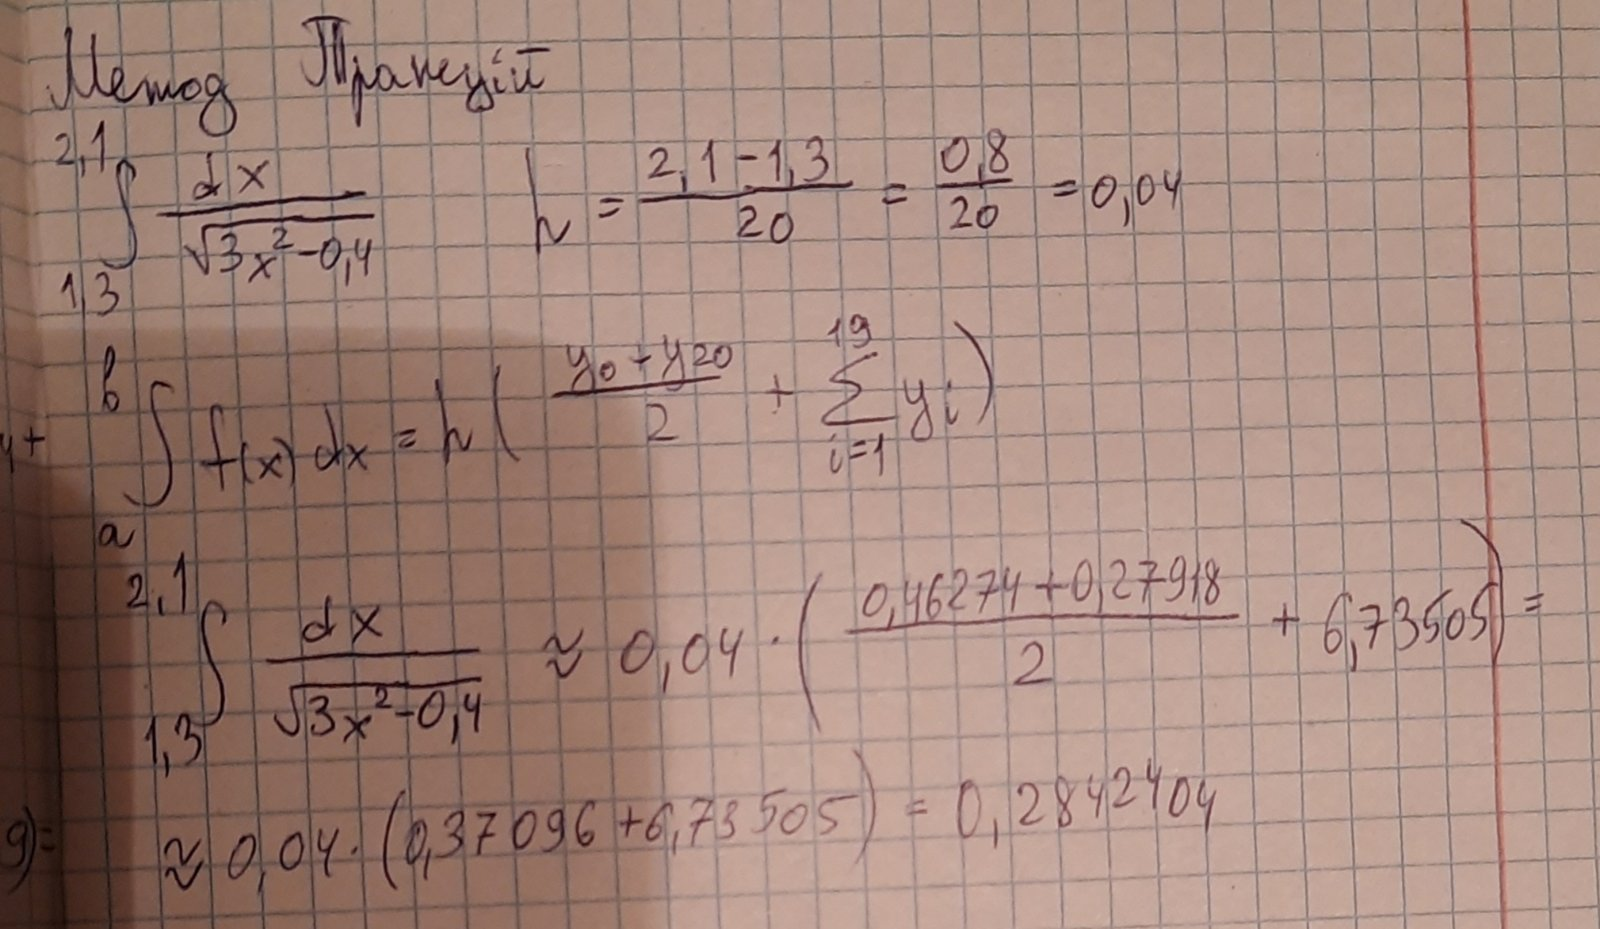 Метод Трапецій
∫_{1,3}^{2,1} dx / √(3x² - 0,4)   h = (2,1 - 1,3) / 20 = 0,8 / 20 = 0,04
∫_a^b f(x) dx = h ( (y₀ + y₂₀) / 2 + ∑_{i=1}^{19} yᵢ )
∫_{1,3}^{2,1} dx / √(3x² - 0,4) ≈ 0,04 · ( (0,46274 + 0,27918) / 2 + 6,73505 ) =
≈ 0,04 · (0,37096 + 6,73505) = 0,2842404